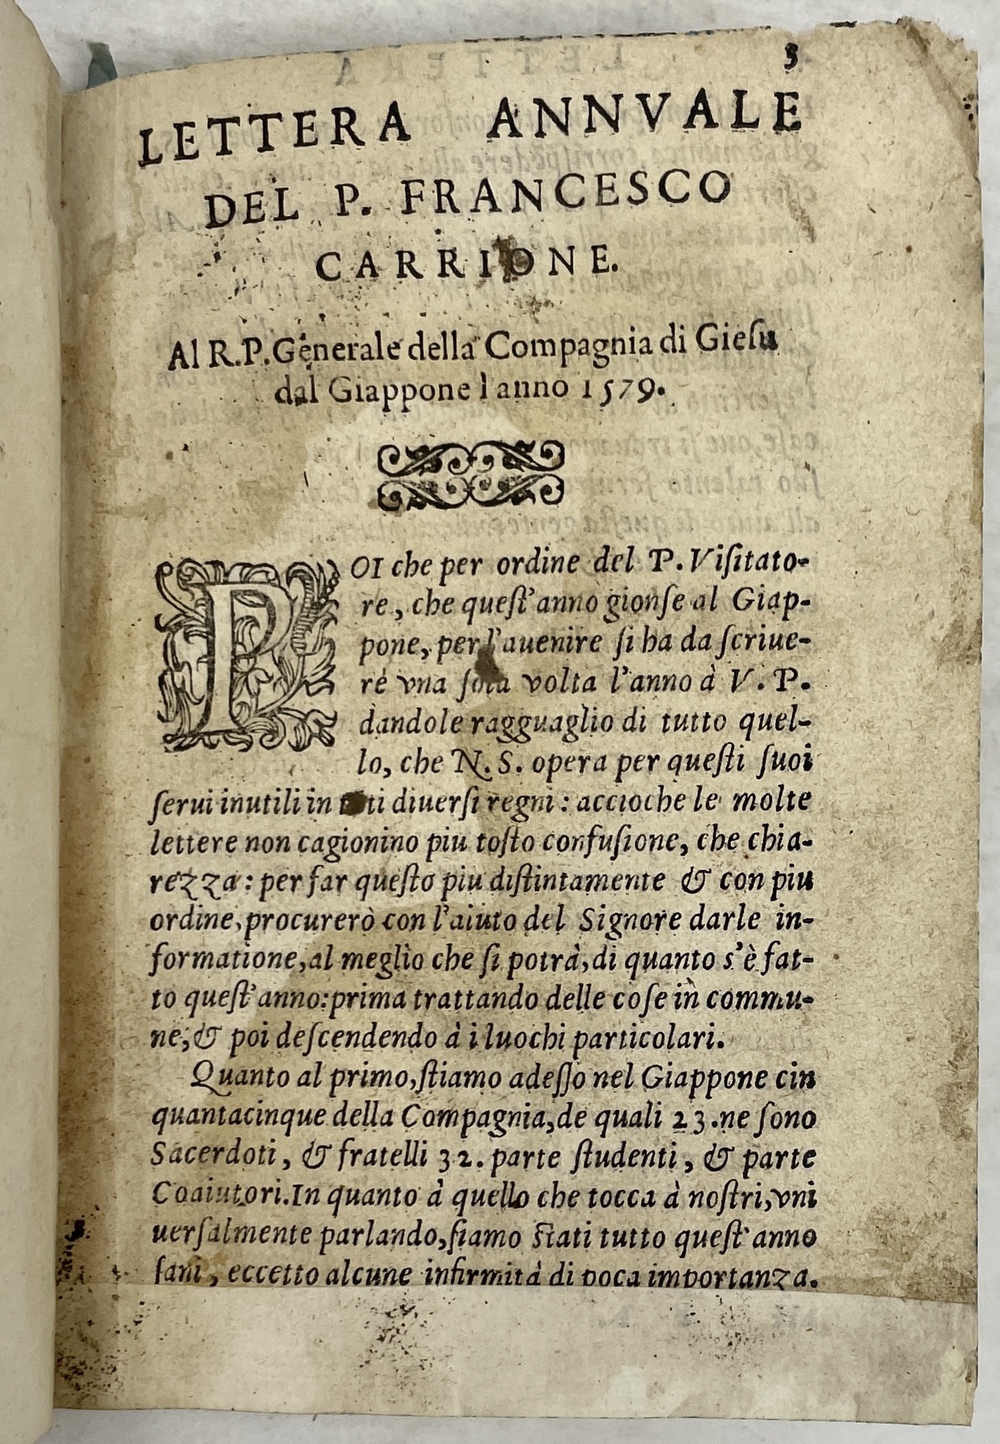 3
LETTERA ANNVALE
DEL P. FRANCESCO
CARRIONE.
Al R.P.Generale della Compagnia di Gieſu
dal Giappone l anno 1579.
POI che per ordine del P. Viſitato-
re, che queſt'anno gionſe al Giap-
pone, per l'auenire ſi ha da ſcriue-
re vna ſola volta l'anno à V. P.
dandole ragguaglio di tutto quel-
lo, che N. S. opera per queſti ſuoi
ſerui inutili in diuerſi regni: accioche le molte
lettere non cagionino piu toſto confuſione, che chia-
rezza: per far queſto piu diſtintamente & con piu
ordine, procurerò con l'aiuto del Signore darle in-
formatione, al meglio che ſi potrà, di quanto s'è fat-
to queſt'anno: prima trattando delle coſe in commu-
ne, & poi deſcendendo à i luochi particolari.
Quanto al primo, ſtiamo adeſſo nel Giappone cin
quantacinque della Compagnia, de quali 23. ne ſono
Sacerdoti, & fratelli 32. parte ſtudenti, & parte
Coaiutori. In quanto à quello che tocca à noſtri, vni
uerſalmente parlando, ſiamo ſtati tutto queſt'anno
ſani, eccetto alcune infirmità di poca importanza.